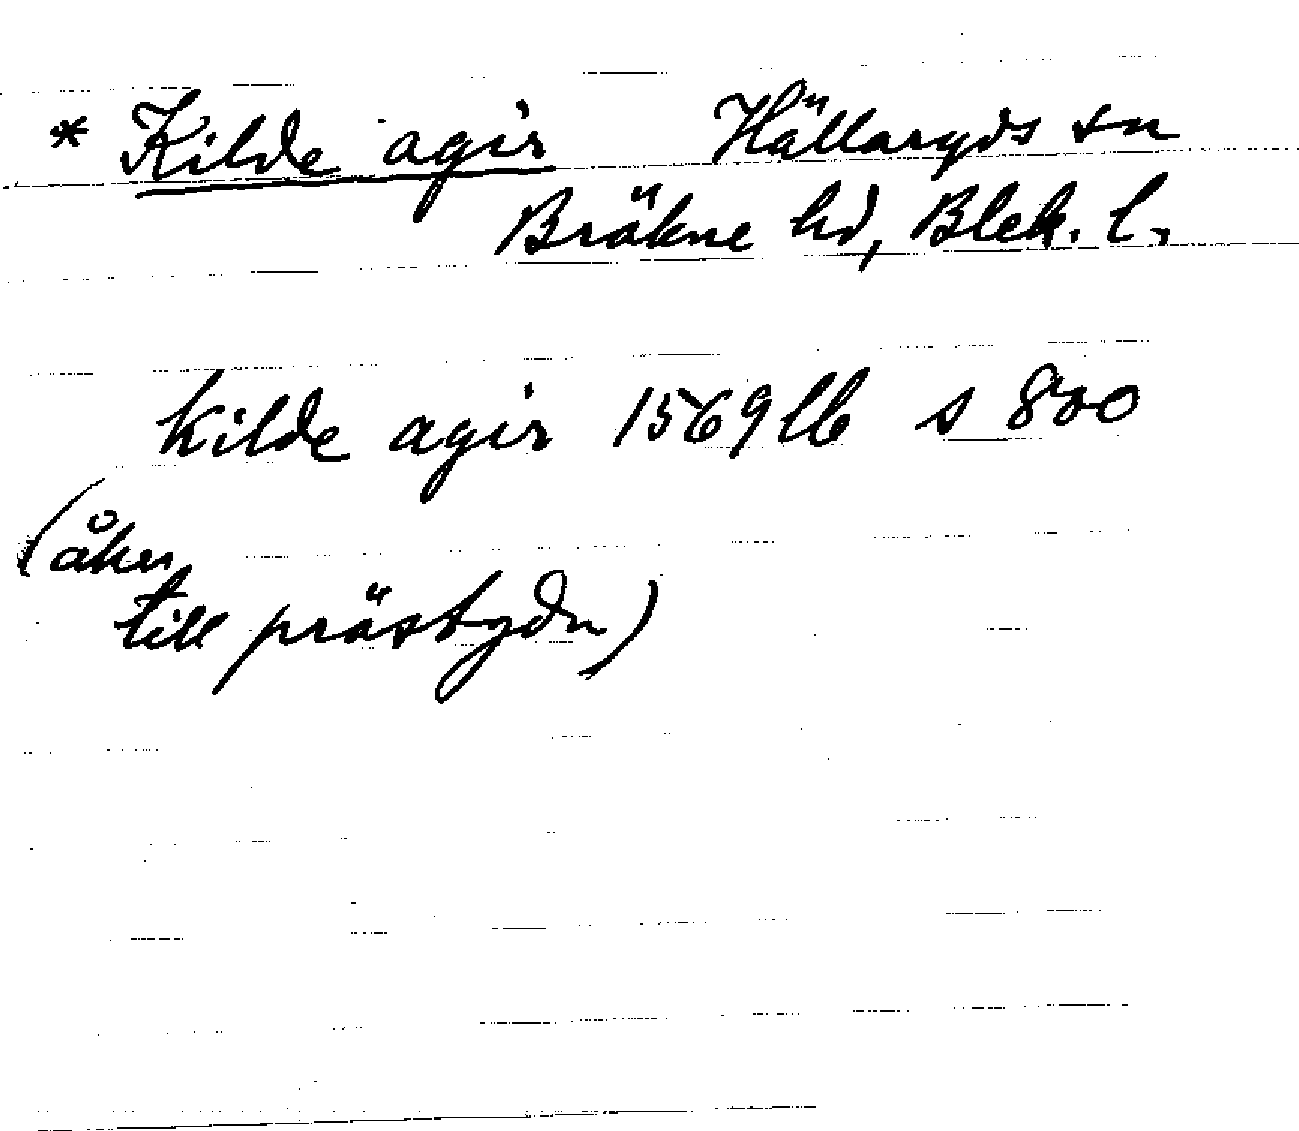 * Kilde agir Hällaryds sn
Bräkne hd, Blek. l.
kilde agir 1569 lb s 800
(åker
till präsbydn)